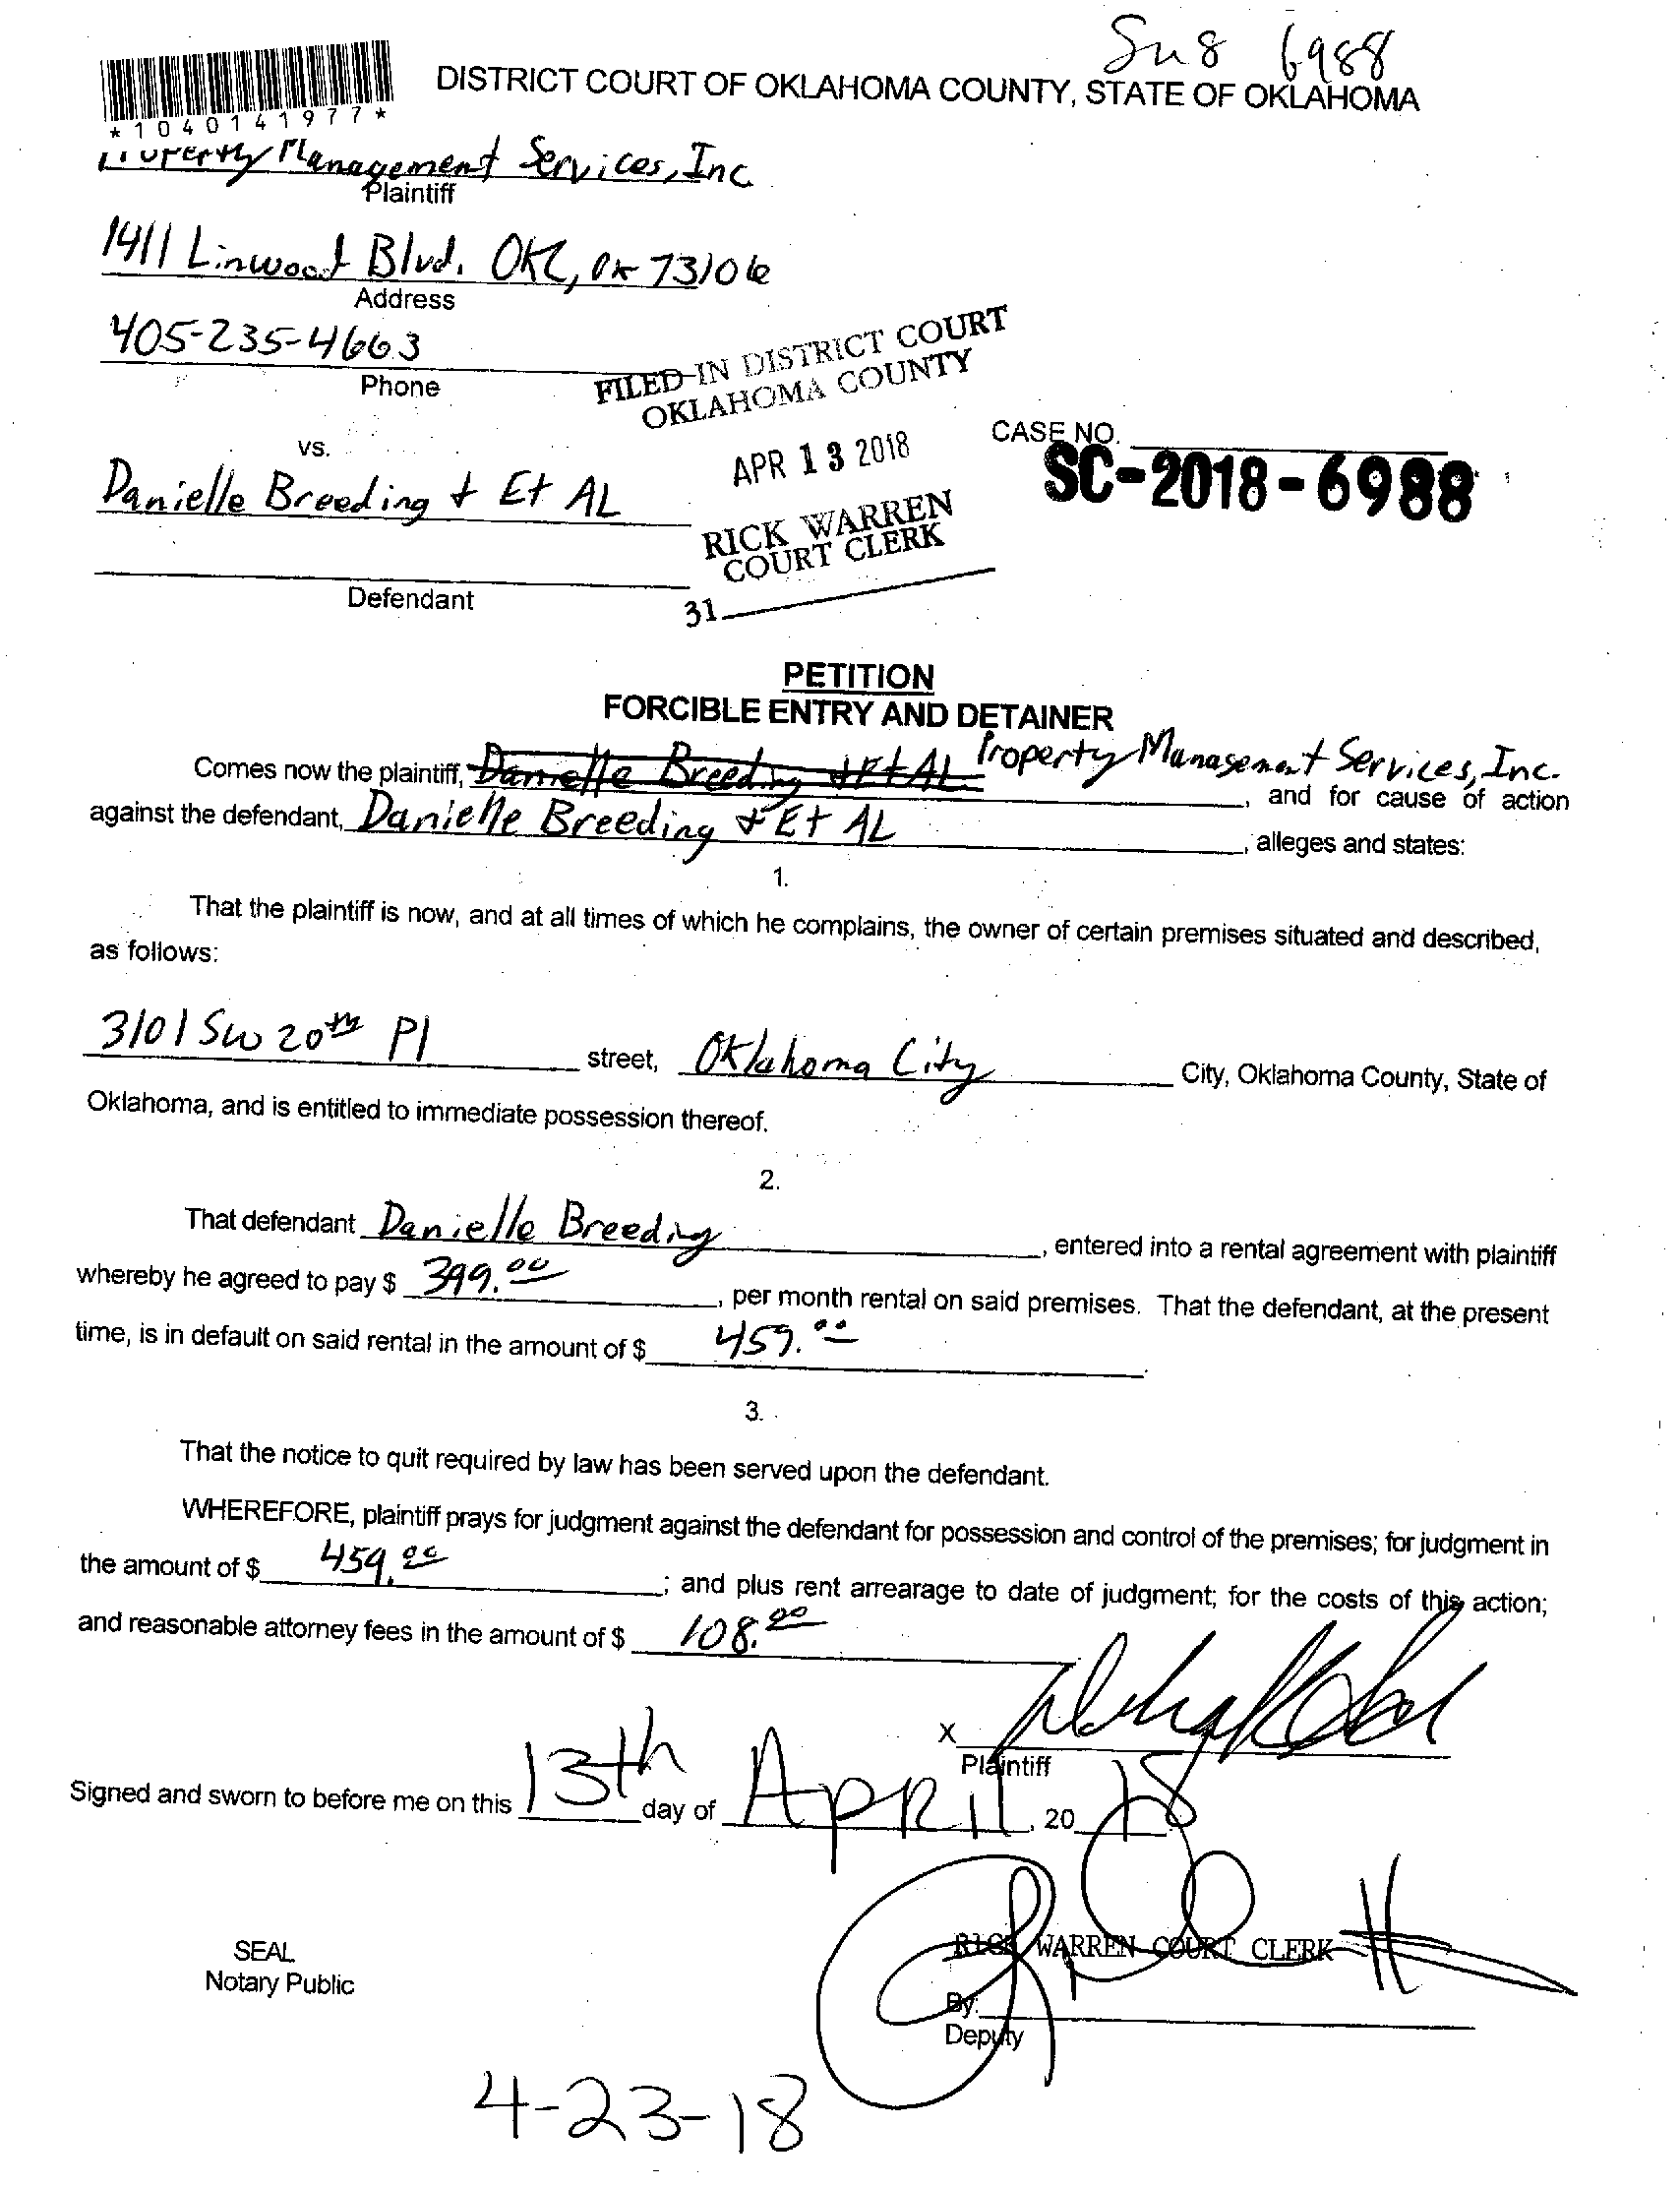 Sm8 6988
DISTRICT COURT OF OKLAHOMA COUNTY, STATE OF OKLAHOMA
*1040141977*
Property Management Services, Inc
Plaintiff
1411 Linwood Blvd. OKC, OK 73106
Address
405-235-4663
Phone
FILED IN DISTRICT COURT
OKLAHOMA COUNTY
vs.
APR 13 2018
CASE NO.
SC-2018-6988
Danielle Breeding + Et AL
RICK WARREN
COURT CLERK
Defendant
31
PETITION
FORCIBLE ENTRY AND DETAINER
Comes now the plaintiff, Danielle Breeding + Et AL Property Management Services, Inc.
, and for cause of action
against the defendant, Danielle Breeding + Et AL, alleges and states:
1.
That the plaintiff is now, and at all times of which he complains, the owner of certain premises situated and described,
as follows:
3101 SW 20th Pl street, Oklahoma City City, Oklahoma County, State of
Oklahoma, and is entitled to immediate possession thereof.
2.
That defendant Danielle Breeding, entered into a rental agreement with plaintiff
whereby he agreed to pay $ 399.00, per month rental on said premises. That the defendant, at the present
time, is in default on said rental in the amount of $ 459.00.
3.
That the notice to quit required by law has been served upon the defendant.
WHEREFORE, plaintiff prays for judgment against the defendant for possession and control of the premises; for judgment in
the amount of $ 459.00; and plus rent arrearage to date of judgment; for the costs of this action;
and reasonable attorney fees in the amount of $ 108.00
X
Plaintiff
Signed and sworn to before me on this 13th day of APRIL, 20 18
RICK WARREN COURT CLERK
SEAL
Notary Public
By:
Deputy
4-23-18